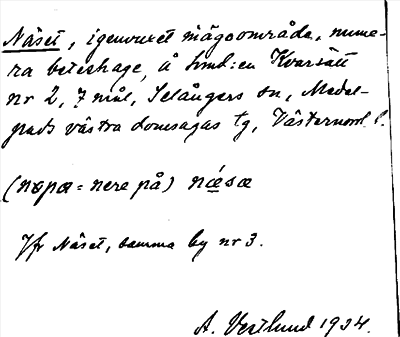 Näset, igenvuxet ängsområde, nume-
ra beteshage, å hmd:en Kvarsätt
nr 2, 7 mål, Selångers sn, Medel-
pads västra domsagas tg, Västernorrl. l.
(nɒpɑ = nere på) næsɑ
Jfr Näset, samma by nr 3.
A. Vestlund 1934.